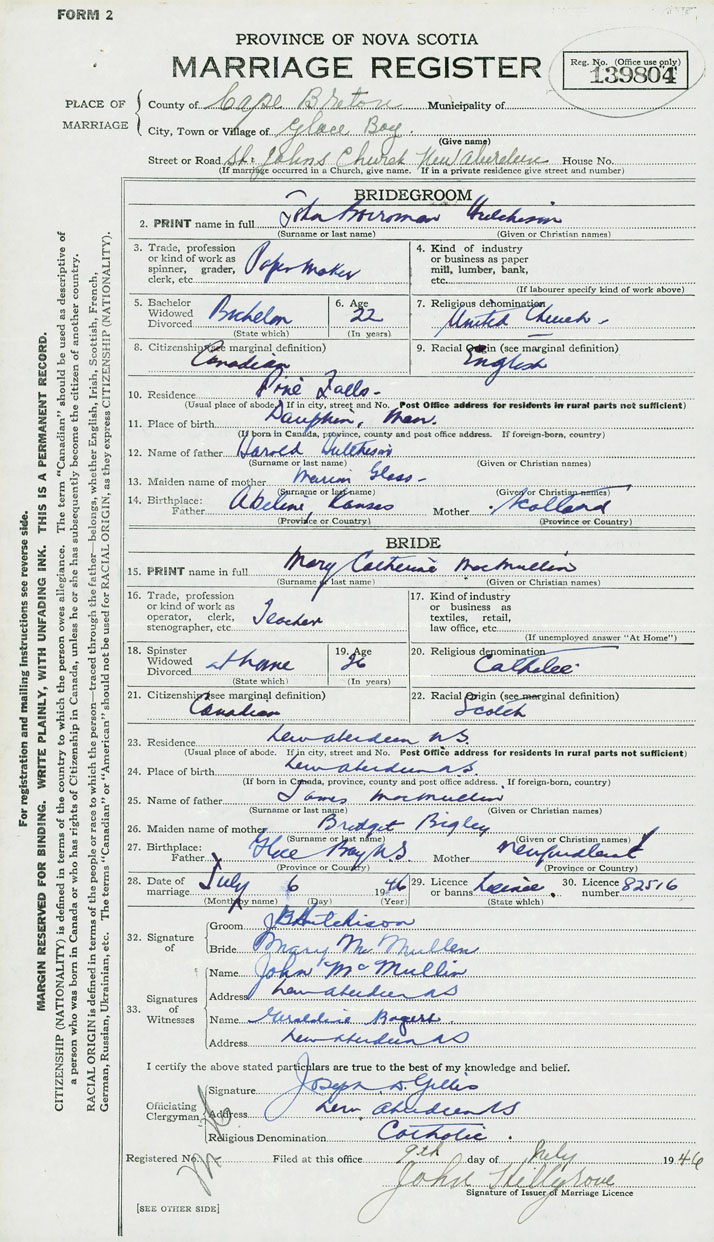 FORM 2
PROVINCE OF NOVA SCOTIA
MARRIAGE REGISTER
Reg. No. (Office use only)
139804
PLACE OF MARRIAGE
County of Cape Breton Municipality of
City, Town or Village of Glace Bay.
(Give name)
Street or Road St. Johns Church New Aberdeen House No.
(If marriage occurred in a Church, give name. If in a private residence give street and number)
BRIDEGROOM
2. PRINT name in full John Hutchison
(Surname or last name) (Given or Christian names)
3. Trade, profession or kind of work as spinner, grader, clerk, etc. Paper Maker
4. Kind of industry or business as paper mill, lumber, bank, etc.
(If labourer specify kind of work above)
5. Bachelor Widowed Divorced Bachelor
(State which)
6. Age 22
(In years)
7. Religious denomination United Church -
8. Citizenship (see marginal definition) Canadian
9. Racial Origin (see marginal definition) English
10. Residence Pine Falls -
(Usual place of abode. If in city, street and No. Post Office address for residents in rural parts not sufficient)
11. Place of birth Dauphin, Man.
(If born in Canada, province, county and post office address. If foreign-born, country)
12. Name of father Harold Hutchison
(Surname or last name) (Given or Christian names)
13. Maiden name of mother Marion Glass -
(Surname or last name) (Given or Christian names)
14. Birthplace: Father Abelene, Kansas Mother Scotland
(Province or Country) (Province or Country)
BRIDE
15. PRINT name in full Mary Catherine MacMullin
(Surname or last name) (Given or Christian names)
16. Trade, profession or kind of work as operator, clerk, stenographer, etc. Teacher
17. Kind of industry or business as textiles, retail, law office, etc.
(If unemployed answer "At Home")
18. Spinster Widowed Divorced
(State which)
19. Age 26
(In years)
20. Religious denomination Catholic
21. Citizenship (see marginal definition) Canadian
22. Racial Origin (see marginal definition) Scotch
23. Residence New Aberdeen N S
(Usual place of abode. If in city, street and No. Post Office address for residents in rural parts not sufficient)
24. Place of birth New Aberdeen N.S.
(If born in Canada, province, county and post office address. If foreign-born, country)
25. Name of father James MacMullin
(Surname or last name) (Given or Christian names)
26. Maiden name of mother Bridget Bigley
(Surname or last name) (Given or Christian names)
27. Birthplace: Father Glace Bay N.S. Mother Newfoundland
(Province or Country) (Province or Country)
28. Date of marriage July 6 1946
(Month by name) (Day) (Year)
29. Licence or banns License.
(State which)
30. Licence number 82516
32. Signature of
Groom J B Hutchison
Bride Mary Mc Mullen
33. Signatures of Witnesses
Name John McMullin
Address New Aberdeen N S
Name Geraldine Rogers.
Address New Aberdeen N S
I certify the above stated particulars are true to the best of my knowledge and belief.
Officiating Clergyman
Signature Joseph D. Gillis
Address New Aberdeen N S
Religious Denomination Catholic.
Registered No. Filed at this office 9th day of July 1946
John Hillgrove
Signature of Issuer of Marriage Licence
[SEE OTHER SIDE]
For registration and mailing instructions see reverse side.
MARGIN RESERVED FOR BINDING. WRITE PLAINLY, WITH UNFADING INK. THIS IS A PERMANENT RECORD.
CITIZENSHIP (NATIONALITY) is defined in terms of the country to which the person owes allegiance. The term "Canadian" should be used as descriptive of
a person who was born in Canada or who has rights of Citizenship in Canada, unless he or she has subsequently become the citizen of another country.
RACIAL ORIGIN is defined in terms of the people or race to which the person—traced through the father—belongs, whether English, Irish, Scottish, French,
German, Russian, Ukrainian, etc. The terms "Canadian" or "American" should not be used for RACIAL ORIGIN, as they express CITIZENSHIP (NATIONALITY).